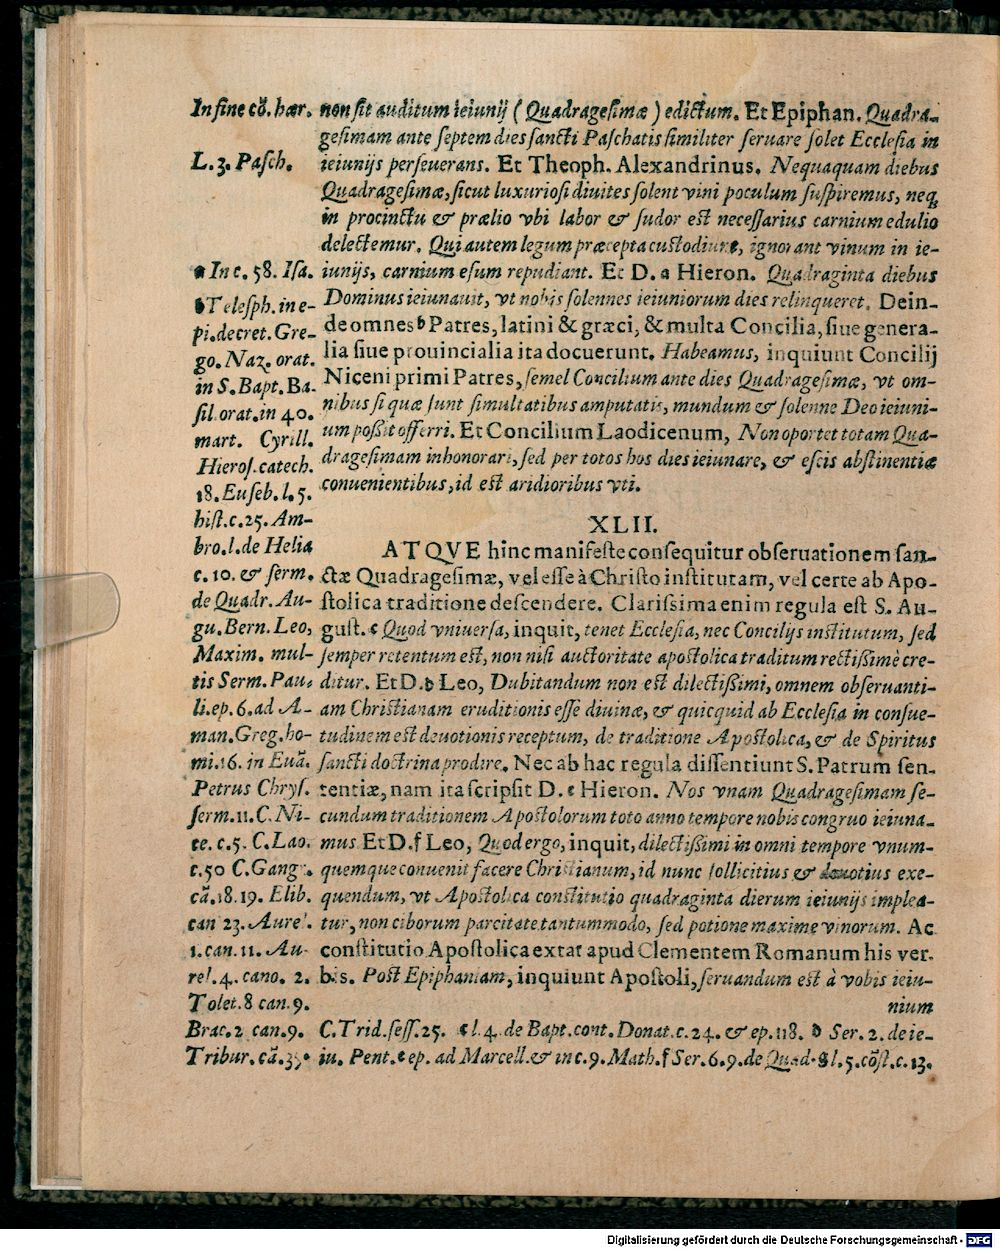 In fine cō. hær.
L. 3. Pasch.
a In c. 58. Isa.
b Telesph. in e-
pi. decret. Gre-
go. Naz. orat.
in S. Bapt. Ba-
sil. orat. in 40.
mart. Cyrill.
Hieros. catech.
18. Euseb. l. 5.
hist. c. 25. Am-
bro. l. de Helia
c. 10. & serm.
de Quadr. Au-
gu. Bern. Leo,
Maxim. mul-
tis Serm. Pau-
li. ep. 6. ad A-
man. Greg. ho-
mi. 16. in Euā.
Petrus Chrys.
serm. 11. C. Ni-
ce. c. 5. C. Lao.
c. 50 C. Gang.
cā. 18. 19. Elib.
can 23. Aurel.
1. can. 11. Au-
rel. 4. cano. 2.
Tolet. 8 can. 9.
Brac. 2 can. 9.
Tribur. cā. 35.
non sit auditum ieiunij (Quadragesimæ) edictum. Et Epiphan. Quadra-
gesimam ante septem dies sancti Paschatis similiter seruare solet Ecclesia in
ieiunijs perseuerans. Et Theoph. Alexandrinus. Nequaquam diebus
Quadragesimæ, sicut luxuriosi diuites solent vini poculum suspiremus, neq;
in procinctu & prælio vbi labor & sudor est necessarius carnium edulio
delectemur. Qui autem legum præcepta custodiunt, ignorant vinum in ie-
iunijs, carnium esum repudiant. Et D. a Hieron. Quadraginta diebus
Dominus ieiunauit, vt nobis solennes ieiuniorum dies relinqueret. Dein-
de omnes b Patres, latini & græci, & multa Concilia, siue genera-
lia siue prouincialia ita docuerunt. Habeamus, inquiunt Concilij
Niceni primi Patres, semel Concilium ante dies Quadragesimæ, vt om-
nibus si quæ sunt simultatibus amputatis, mundum & solenne Deo ieiuni-
um possit offerri. Et Concilium Laodicenum, Non oportet totam Qua-
dragesimam inhonorari, sed per totos hos dies ieiunare, & escis abstinentiæ
conuenientibus, id est aridioribus vti.
XLII.
ATQVE hinc manifeste consequitur obseruationem san-
ctæ Quadragesimæ, vel esse à Christo institutam, vel certe ab Apo-
stolica traditione descendere. Clarissima enim regula est S. Au-
gust. c Quod vniuersa, inquit, tenet Ecclesia, nec Concilijs institutum, sed
semper retentum est, non nisi auctoritate apostolica traditum rectissimè cre-
ditur. Et D. d Leo, Dubitandum non est dilectissimi, omnem obseruanti-
am Christianam eruditionis esse diuinæ, & quicquid ab Ecclesia in consue-
tudinem est deuotionis receptum, de traditione Apostolica, & de Spiritus
sancti doctrina prodire. Nec ab hac regula dissentiunt S. Patrum sen-
tentiæ, nam ita scripsit D. e Hieron. Nos vnam Quadragesimam se-
cundum traditionem Apostolorum toto anno tempore nobis congruo ieiuna-
mus Et D. f Leo, Quod ergo, inquit, dilectissimi in omni tempore vnum-
quemque conuenit facere Christianum, id nunc sollicitius & deuotius exe-
quendum, vt Apostolica constitutio quadraginta dierum ieiunijs implea-
tur, non ciborum parcitate tantummodo, sed potione maxime vinorum. Ac
constitutio Apostolica extat apud Clementem Romanum his ver-
bis. Post Epiphaniam, inquiunt Apostoli, seruandum est à vobis ieiu-
nium
C. Trid. sess. 25. c l. 4. de Bapt. cont. Donat. c. 24. & ep. 118. d Ser. 2. de ie-
iu. Pent. e ep. ad Marcell. & in c. 9. Math. f Ser. 6. 9. de Quad. g l. 5. cōst. c. 13.
Digitalisierung gefördert durch die Deutsche Forschungsgemeinschaft - DFG